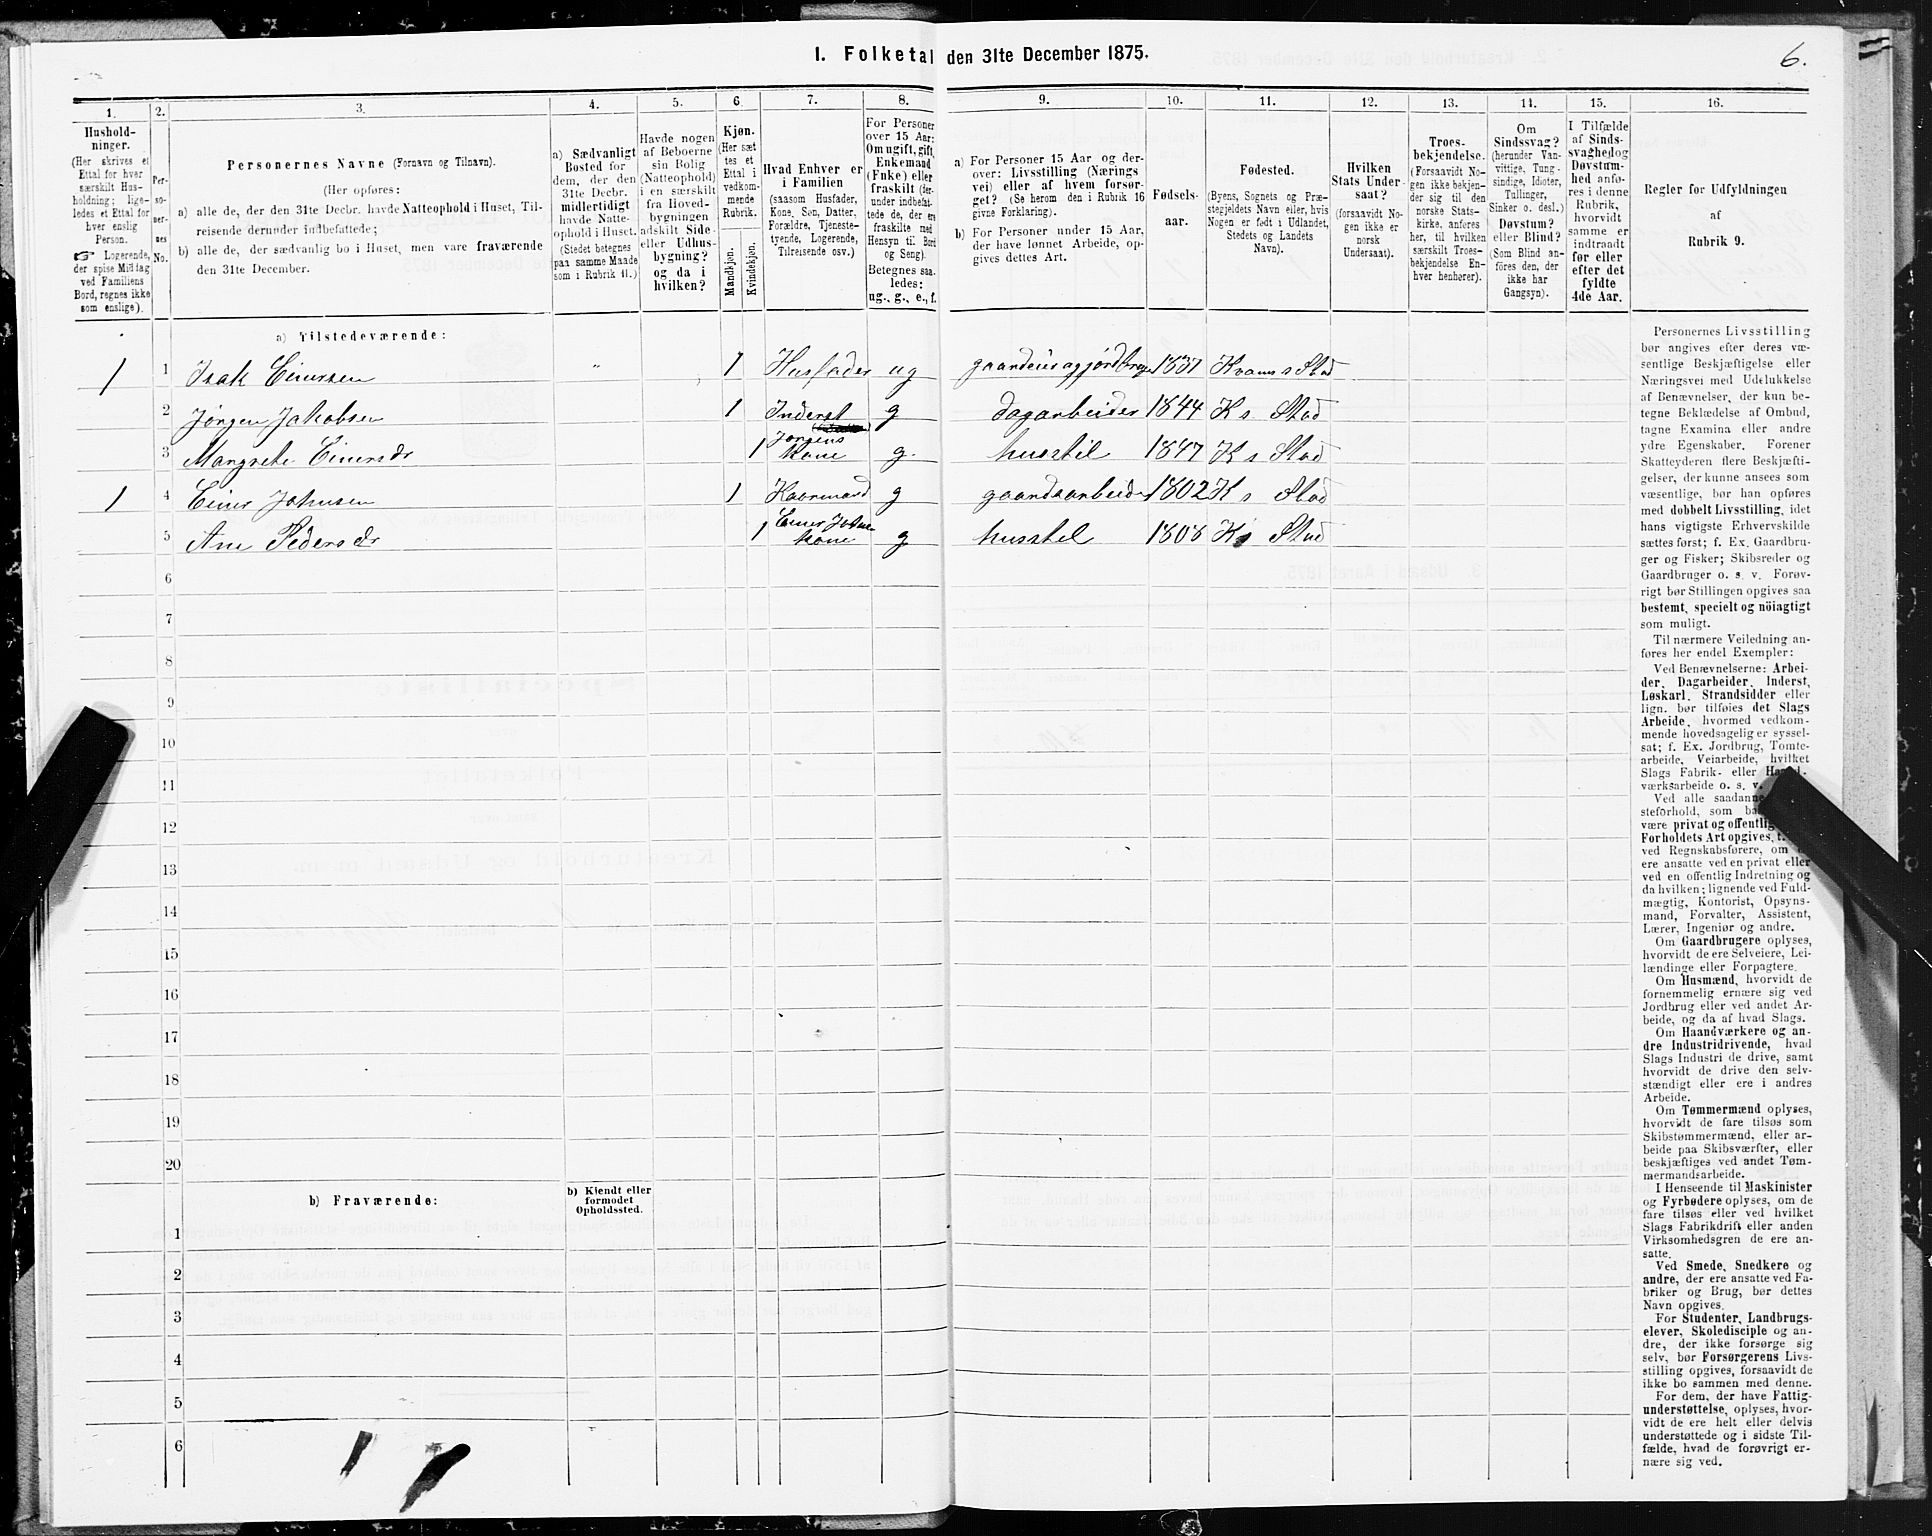 I. Folketal den 31te December 1875.
6.
1. 2. 3. 4. 5. 6. 7. 8. 9. 10. 11. 12. 13. 14. 15. 16.
Hushold-
ninger.
(Her skrives et
Ettal for hver
særskilt Hus-
holdning; lige-
ledes et Ettal for
hver enslig
Person.
☞ Logerende,
der spise Middag
ved Familiens
Bord, regnes ikke
som enslige).
Per-
so-
ner-
nes
No.
Personernes Navne (Fornavn og Tilnavn).
(Her opføres:
a) alle de, der den 31te Decbr. havde Natteophold i Huset, Til-
reisende derunder indbefattede;
b) alle de, der sædvanlig bo i Huset, men vare fraværende
den 31te December.
a) Sædvanligt
Bosted for
dem, der den
31te Decbr.
midlertidigt
havde Natte-
ophold i Huset.
(Stedet betegnes
paa samme Maade
som i Rubrik 11.)
Havde nogen
af Beboerne
sin Bolig
(Natteophold)
i en særskilt
fra Hoved-
bygningen
adskilt Side-
eller Udhus-
bygning?
og da i
hvilken?
Kjøn.
(Her sæt-
tes et
Ettal i
vedkom-
mende
Rubrik.
Mandkjøn.
Kvindekjøn.
Hvad Enhver er
i Familien
(saasom Husfader,
Kone, Søn, Datter,
Forældre, Tjeneste-
tyende, Logerende,
Tilreisende osv.)
For Personer
over 15 Aar:
Om ugift, gift,
Enkemand
(Enke) eller
fraskilt (der-
under indbefat-
tede de, der ere
fraskilte med
Hensyn til Bord
og Seng).
Betegnes saa-
ledes:
ug., g., e., f.
a) For Personer 15 Aar og der-
over: Livsstilling (Nærings
vei) eller af hvem forsør-
get? (Se herom den i Rubrik 16
givne Forklaring).
b) For Personer under 15 Aar,
der have lønnet Arbeide, op-
gives dettes Art.
Fødsels-
aar.
Fødested.
(Byens, Sognets og Præ-
stegjeldets Navn eller, hvis
Nogen er født i Udlandet,
Stedets og Landets
Navn).
Hvilken
Stats Under-
saat?
(forsaavidt No-
gen ikke er
norsk
Undersaat).
Troes-
bekjendelse.
(Forsaavidt No-
gen ikke bekjen-
der sig til den
norske Stats-
kirke, anføres
her, til hvilken
særskilt Troes-
bekjendelse En-
hver henhører).
Om
Sindssvag?
(herunder Van-
vittige, Tung-
sindige, Idioter,
Tullinger,
Sinker o. desl.)
Døvstum?
eller Blind?
(Som Blind an-
føres den, der
ikke har
Gangsyn).
I Tilfælde
af Sinds-
svaghed og
Døvstum-
hed anfø-
res i denne
Rubrik,
hvorvidt
samme er
indtraadt
før eller
efter det
fyldte
4de Aar.
Regler for Udfyldningen
af
Rubrik 9.
a) Tilstedeværende:
1 1 Isak Einersen " 1 Husfader ug gaardeier og jordbruger 1837 Kvams s Stod
2 Jørgen Jakobsen 1 Inderst g dagarbeider 1844 K s Stod
3 Margrete Einersdr 1 Jørgens kone g. husstel 1847 K s Stod
1 4 Einer Johnsen 1 Kaarmand g gaardsarbeider 1802 K s Stod
5 Ane Pedersdr 1 Einer Johns kone g husstel 1808 K s Stod
6
7
8
9
10
11
12
13
14
15
16
17
18
19
20
b) Fraværende:
b) Kjendt eller
formodet
Opholdssted.
1
2
3
4
5
6
Personernes Livsstilling
bør angives efter deres væ-
sentlige Beskjæftigelse eller
Næringsvei med Udelukkelse
af Benævnelser, der kun be-
tegne Beklædelse af Ombud,
tagne Examina eller andre
ydre Egenskaber. Forener
Skatteyderen flere Beskjæfti-
gelser, der kunne ansees som
væsentlige, bør han opføres
med dobbelt Livsstilling, idet
hans vigtigste Erhvervskilde
sættes først; f. Ex. Gaardbru-
ger og Fisker; Skibsreder og
Gaardbruger o. s. v. Forøv-
rigt bør Stillingen opgives saa
bestemt, specielt og nöiagtigt
som muligt.
Til nærmere Veiledning an-
føres her endel Exempler:
Ved Benævnelserne: Arbei-
der, Dagarbeider, Inderst,
Løskarl, Strandsidder eller
lign. bør tilføies det Slags
Arbeide, hvormed vedkom-
mende hovedsagelig er syssel-
sat; f. Ex. Jordbrug, Tomte-
arbeide, Veiarbeide, hvilket
Slags Fabrik- eller
værksarbeide o. s. v.
Ved alle saadanne
steforhold, som
være privat og
Forholdets Art opgives,
ved Regnskabsførere, om
ere ansatte ved en privat eller
ved en offentlig Indretning og
da hvilken; lignende ved Fuld-
mægtig, Kontorist, Opsyns-
mand, Forvalter, Assistent,
Lærer, Ingeniør og andre.
Om Gaardbrugere oplyses,
hvorvidt de ere Selveiere, Lei-
lændinge eller Forpagtere.
Om Husmænd, hvorvidt de
fornemmelig ernære sig ved
Jordbrug eller ved andet Ar-
beide, og da af hvad Slags.
Om Haandværkere og an-
dre Industridrivende, hvad
Slags Industri de drive, samt
hvorvidt de drive den selv-
stændigt eller ere i andres
Arbeide.
Om Tømmermænd oplyses,
hvorvidt de fare tilsøs som
Skibstømmermænd, eller ar-
beide paa Skibsværfter, eller
beskjæftiges ved andet Tøm-
mermandsarbeide.
I Henseende til Maskinister
og Fyrbødere oplyses, om de
fare tilsøs eller ved hvilket
Slags Fabrikdrift eller anden
Virksomhedsgren de ere an-
satte.
Ved Smede, Snedkere og
andre, der ere ansatte ved Fa-
briker og Brug, bør dettes
Navn opgives.
For Studenter, Landbrugs-
elever, Skoledisciple og an-
dre, der ikke forsørge sig
selv, bør Forsørgerens Livs-
stilling opgives, forsaavidt de
ikke bo sammen med denne.
For dem, der have Fattig-
understøttelse, oplyses, hvor-
vidt de ere helt eller delvis
understøttede og i sidste Til-
fælde, hvad de forøvrigt er-
nære sig ved.